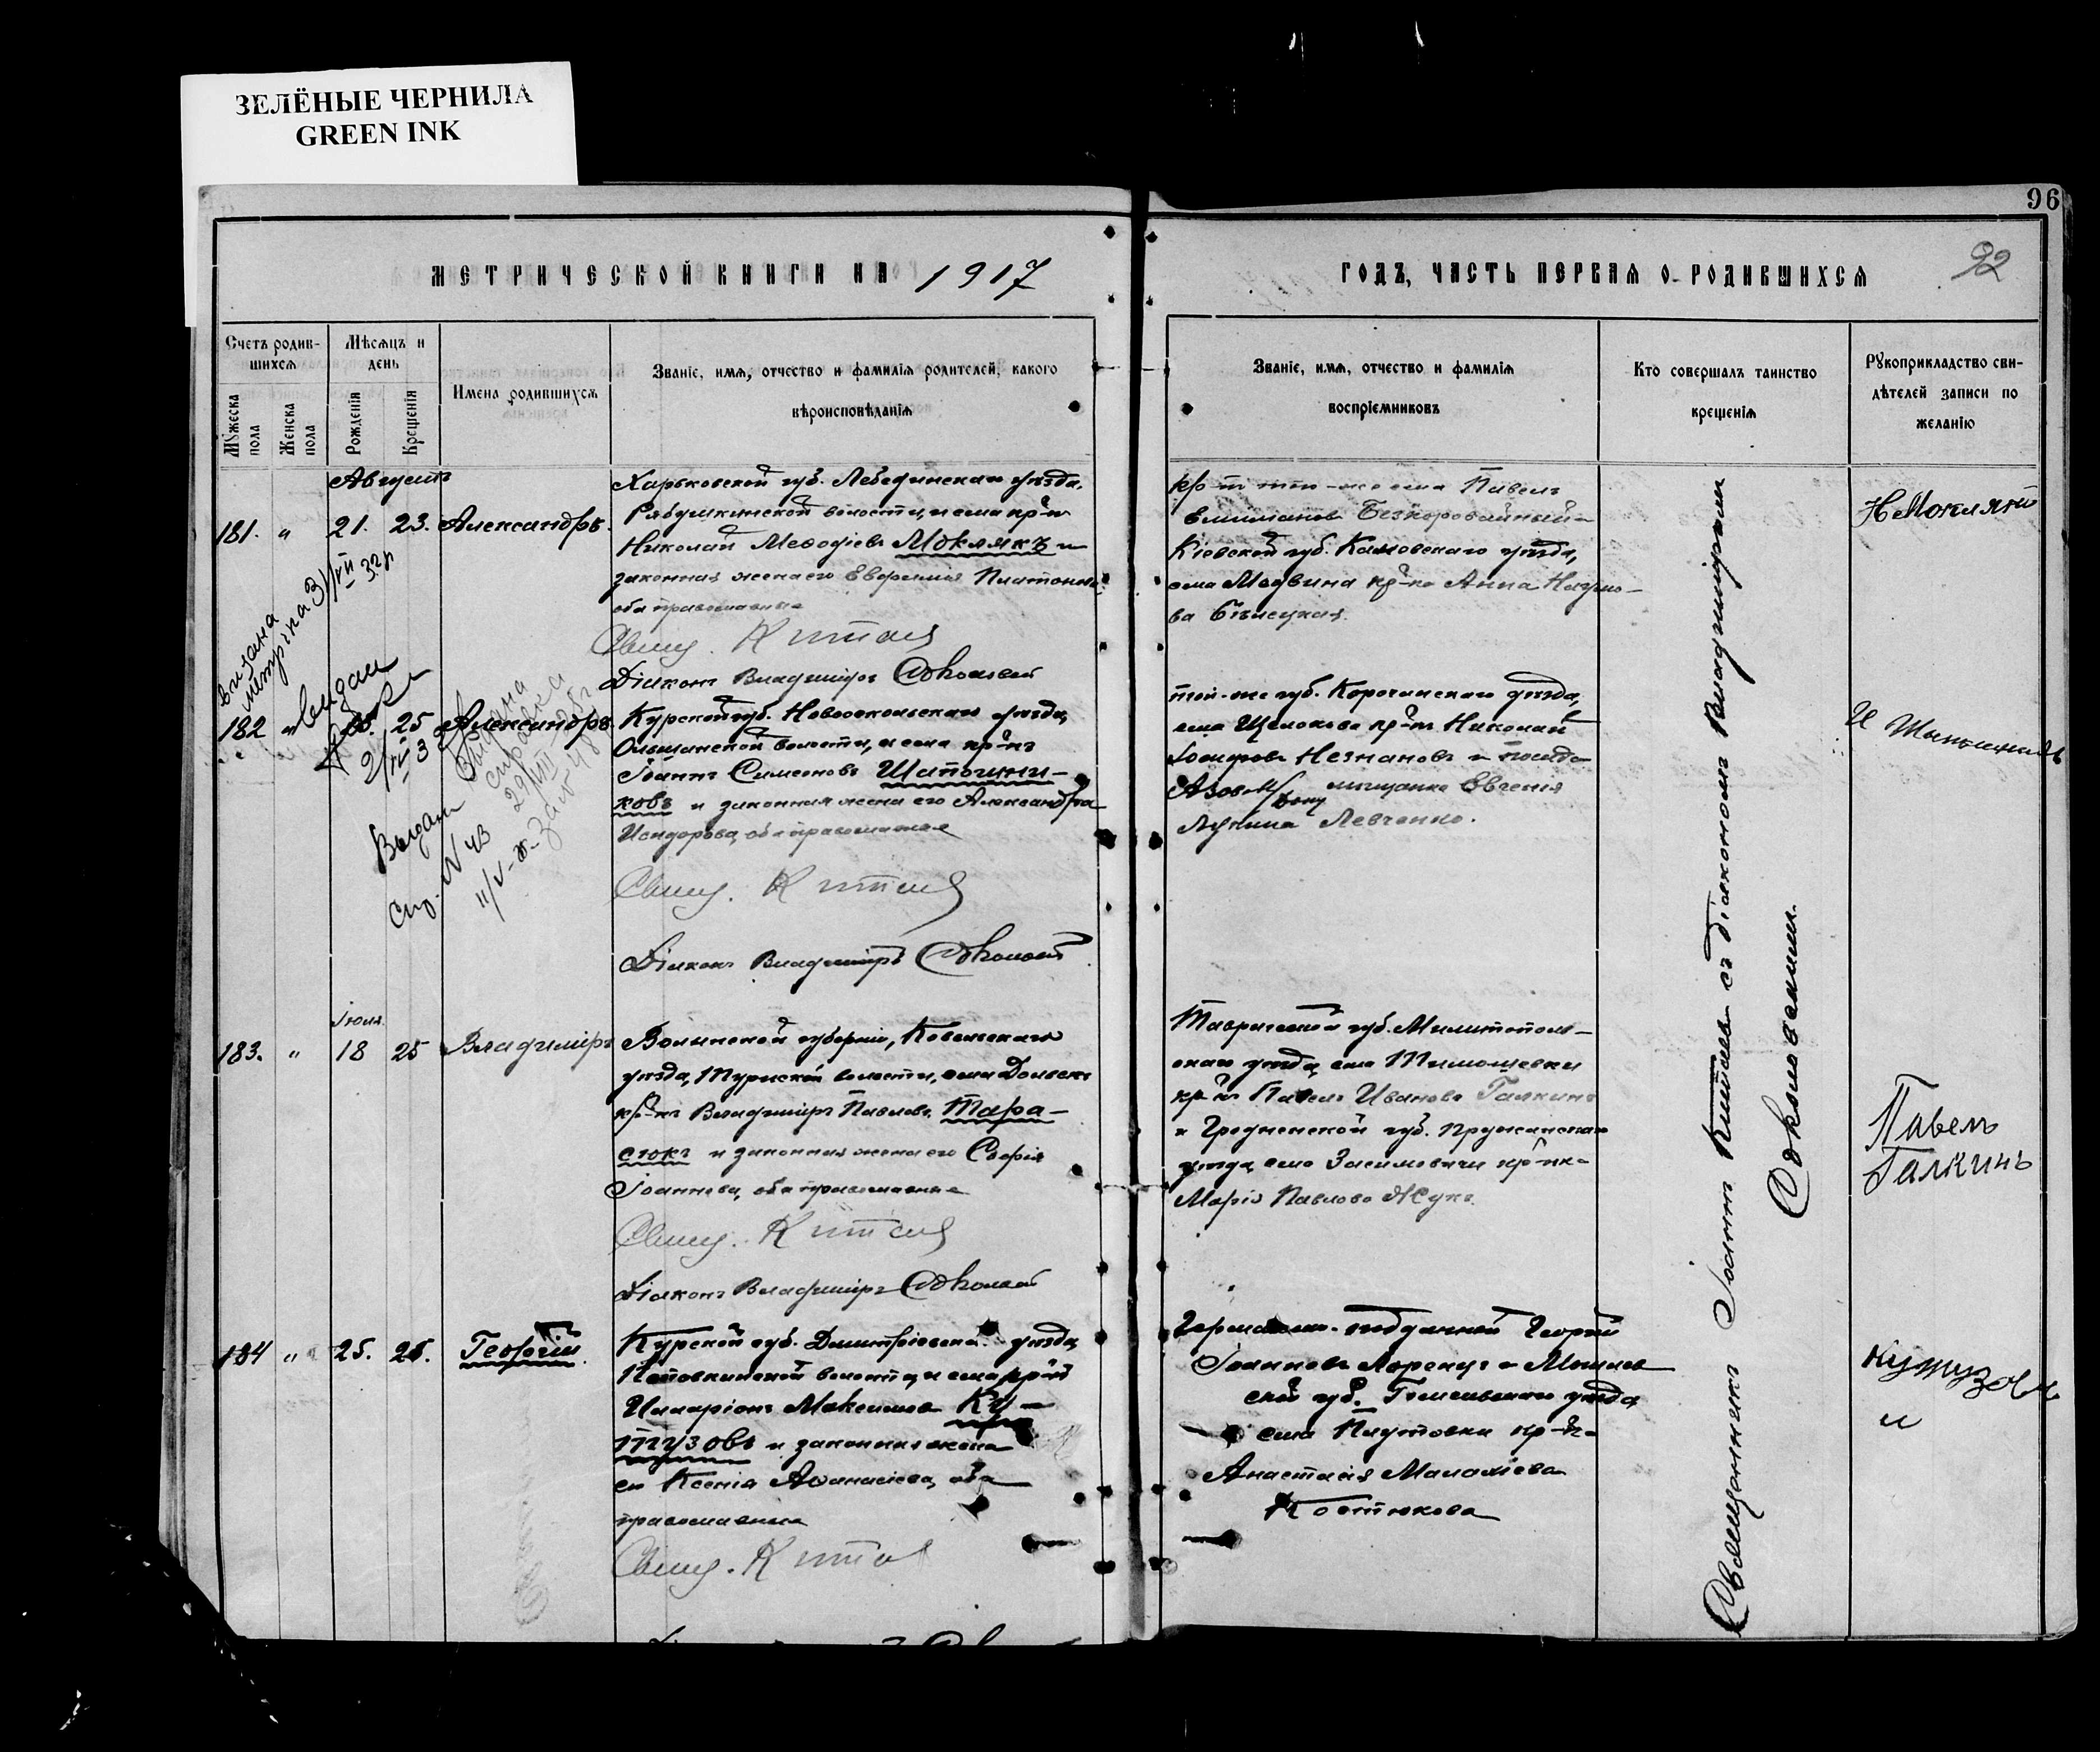 ЗЕЛЁНЫЕ ЧЕРНИЛА
GREEN INK
96
МЕТРИЧЕСКОЙ КНИГИ НА 1917
ГОДЪ, ЧАСТЬ ПЕРВАЯ О РОДИВШИХСЯ
92
Счетъ родив-
шихся
Мужеска пола
Женска пола
Мѣсяцъ и
день
Рожденія
Крещенія
Имена родившихся
Званіе, имя, отчество и фамилія родителей, какого
вѣроисповѣданія
Званіе, имя, отчество и фамилія
воспріемниковъ
Кто совершалъ таинство
крещенія
Рукоприкладство сви-
дѣтелей записи по
желанію
Августъ
181. " 21. 23. Александръ.
Харьковской губ. Лебединскаго уѣзда,
Рябушкинской волости, и села кр-нъ
Николай Меѳодіевъ Мокляхъ и
законная жена его Евфимія Платонова
оба православные
Свящ. Китаевъ
Діаконъ Владиміръ Соколовскій
кр-нъ того-же села Павелъ
Безкоровайный и
Кіевской губ. Каневскаго уѣзда,
села Медвина кр-ка Анна Наумо-
ва
видана
метрика 31/VII 32 р
182 " 25 Александръ.
Курской губ. Новооскольскаго уѣзда,
Ольшанской волости, и села кр-нъ
Іоаннъ Симеоновъ Шапошни-
ковъ и законная жена его Александра
Исидорова, оба православные
Свящ. Китаевъ
Діаконъ Владиміръ Соколовскій
той-же губ. Корочанскаго уѣзда,
села кр-нъ Николай
Незнановъ и посада
Азов мѣщанка Евгенія
Левченко.
Выдан
спр. N 43
Выдана
справка
183. " Іюля 18 25 Владиміръ
Волынской губерніи, Ковельскаго
уѣзда, Турійской волости, села Дольскъ
кр-нъ Владиміръ Павловъ Тара-
сюкъ и законная жена его Софія
Іоаннова, оба православные
Свящ. Китаевъ
Діаконъ Владиміръ Соколовскій
Таврической губ. Мелитополь-
скаго уѣзда, села Тимошевки
кр-нъ Павелъ Ивановъ Галкинъ
и Гродненской губ. Пружанскаго
уѣзда, села Засимовичи кр-нка
Марія Павлова Жукъ.
Павелъ
Галкинъ
184 " 25. 26. Георгій
Курской губ. Дмитріевскаго уѣзда,
волости, и села кр-нъ
Иларіонъ Максимовъ Ку-
тузовъ и законная жена
его Ксенія Аѳанасіева, оба
православные
Свящ. Китаевъ
Германско-подданный Георгій
Іоанновъ Лоренцъ и Могилев
ской губ. Гомельскаго уѣзда,
села кр-ка
Анастасія Малахіева
Костюкова
Кутузовъ
и
Священникъ Іоаннъ Китаевъ съ діакономъ Владиміромъ
Соколовскимъ.